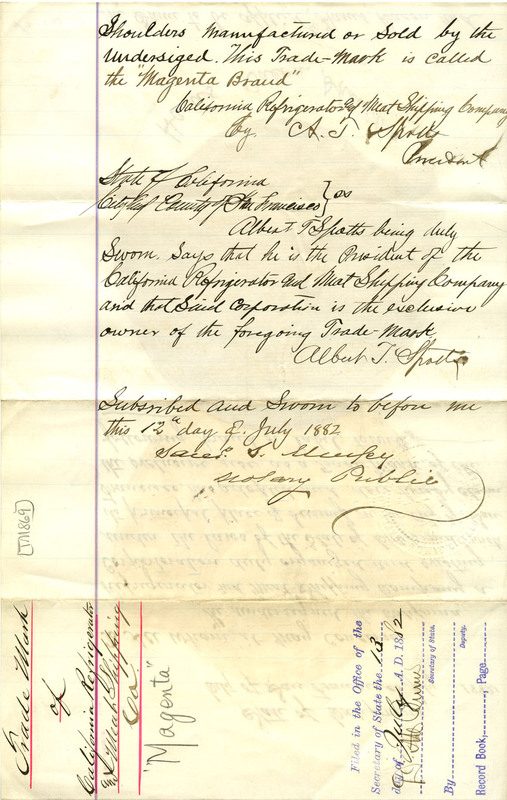 Shoulders manufactured or sold by the
undersiged. This Trade-Mark is called
the "Magenta Brand"
California Refrigerator and Meat Shipping Company
By A. T. Spotts
President
State of California
City & County of San Francisco } ss
Albert T. Spotts being duly
Sworn. Says that he is the President of the
California Refrigerator and Meat Shipping Company
and that Said Corporation is the exclusive
owner of the foregoing Trade-Mark
Albert T. Spotts
Subsribed and Sworn to before me
this 12th day of July 1882
Notary Public
TM869
Trade Mark
of
California Refrigerator
and Meat Shipping
Co.
"Magenta"
Filed in the Office of the
Secretary of State the 13
day of July A. D. 1882
Secretary of State.
By Deputy.
Record Book, Page